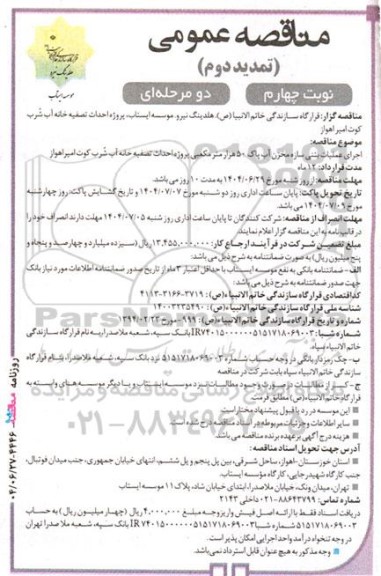 مناقصه عمومی
(تمدید دوم)
نوبت چهارم
دو مرحله‌ای
موسسه ایستاب
مناقصه گزار: قرارگاه سازندگی خاتم الانبیا (ص)، هلدینگ نیرو، موسسه ایستاب، پروژه احداث تصفیه خانه آب شرب
کوت امیر اهواز
موضوع مناقصه:
اجرای عملیات بتنی سازه مخزن آب پاک ۵۰ هزار متر مکعبی پروژه احداث تصفیه خانه آب شرب کوت امیر اهواز
مدت قرارداد: ۱۲ ماه
مهلت مناقصه: از روز شنبه مورخ ۱۴۰۴/۰۶/۲۹ به مدت ۱۰ روز می باشد.
تاریخ تحویل پاکت: پایان ساعت اداری روز دوشنبه مورخ ۱۴۰۴/۰۷/۰۷ و تاریخ گشایش پاکت: روز چهارشنبه
مورخ ۱۴۰۴/۰۷/۰۹ می باشد.
مهلت انصراف از مناقصه: شرکت کنندگان تا پایان ساعت اداری روز شنبه ۱۴۰۴/۰۷/۰۵ مهلت دارند انصراف خود را
در قالب نامه به این مناقصه گزار اعلام نمایند.
مبلغ تضمین شرکت در فرآیند ارجاع کار: ۱۳,۴۵۵,۰۰۰,۰۰۰ ریال (سیزده میلیارد و چهارصد و پنجاه و
پنج میلیون ریال) به صورت ضمانتنامه به شرح ذیل می باشد:
الف - ضمانتنامه بانکی به نفع موسسه ایستاب با حداقل اعتبار ۳ ماه از تاریخ صدور ضمانتنامه اطلاعات مورد نیاز بانک
جهت صدور ضمانتنامه به شرح ذیل می باشد:
کد اقتصادی قرارگاه سازندگی خاتم الانبیاء (ص): ۴۱۱۳-۳۱۶۶-۳۷۱۹
شناسه ملی قرارگاه سازندگی خاتم الانبیاء (ص): ۱۴۰۰۳۲۳۵۴۹۰
شماره و تاریخ ثبت قرارگاه سازندگی خاتم الانبیاء (ص)
شماره شبا: بانک سپه، شعبه ملاصدرا به نام قرارگاه سازندگی
خاتم الانبیاء سپاه.
ب - چک رمزدار بانکی در وجه حساب شماره ۵۱۵۱۷۱۸۰۶۹۰۰۳ نزد بانک سپه، شعبه ملاصدرا، بنام قرارگاه
سازندگی خاتم الانبیاء سپاه بابت شرکت در مناقصه
ج - کسر از مطالبات در صورت وجود مطالبات نزد موسسه ایستاب و یا دیگر موسسه های وابسته به
قرارگاه خاتم الانبیاء (ص) مطابق فرمت
این موسسه در رد یا قبول پیشنهاد مختار است
سایر اطلاعات و جزئیات مربوطه در اسناد مناقصه درج شده است
هزینه درج آگهی بر عهده برنده مناقصه می باشد.
آدرس جهت تحویل اسناد مناقصه:
استان خوزستان - اهواز، ساحل شرقی، بین پل پنجم و پل ششم، انتهای خیابان جمهوری، جنب میدان فوتبال،
جنب کارگاه شهید رجایی، کارگاه موسسه ایستاب.
تهران، میدان ونک، خیابان ملاصدرا، ابتدای خیابان شاد، پلاک ۱۱ موسسه ایستاب
شماره تماس: ۸۸۶۴۳۷۹۹-۰۲۱ داخلی ۲۱۴۳
دریافت اسناد فقط با ارائه اصل فیش واریز وجه مبلغ ۴,۰۰۰,۰۰۰ ریال (چهار میلیون ریال) به حساب
۵۱۵۱۷۱۸۰۶۹۰۰۳ شماره شبا بانک سپه، شعبه ملاصدرا تهران
در وجه تنخواه درآمد واحد اجرایی امکان پذیر است.
وجه مذکور به هیچ عنوان قابل استرداد نمی باشد.
روزنامه مناقصه ۴۴۴۶-۰۴/۰۶/۲۷
۰۲۱-۸۸۳۴۹۶۷۰